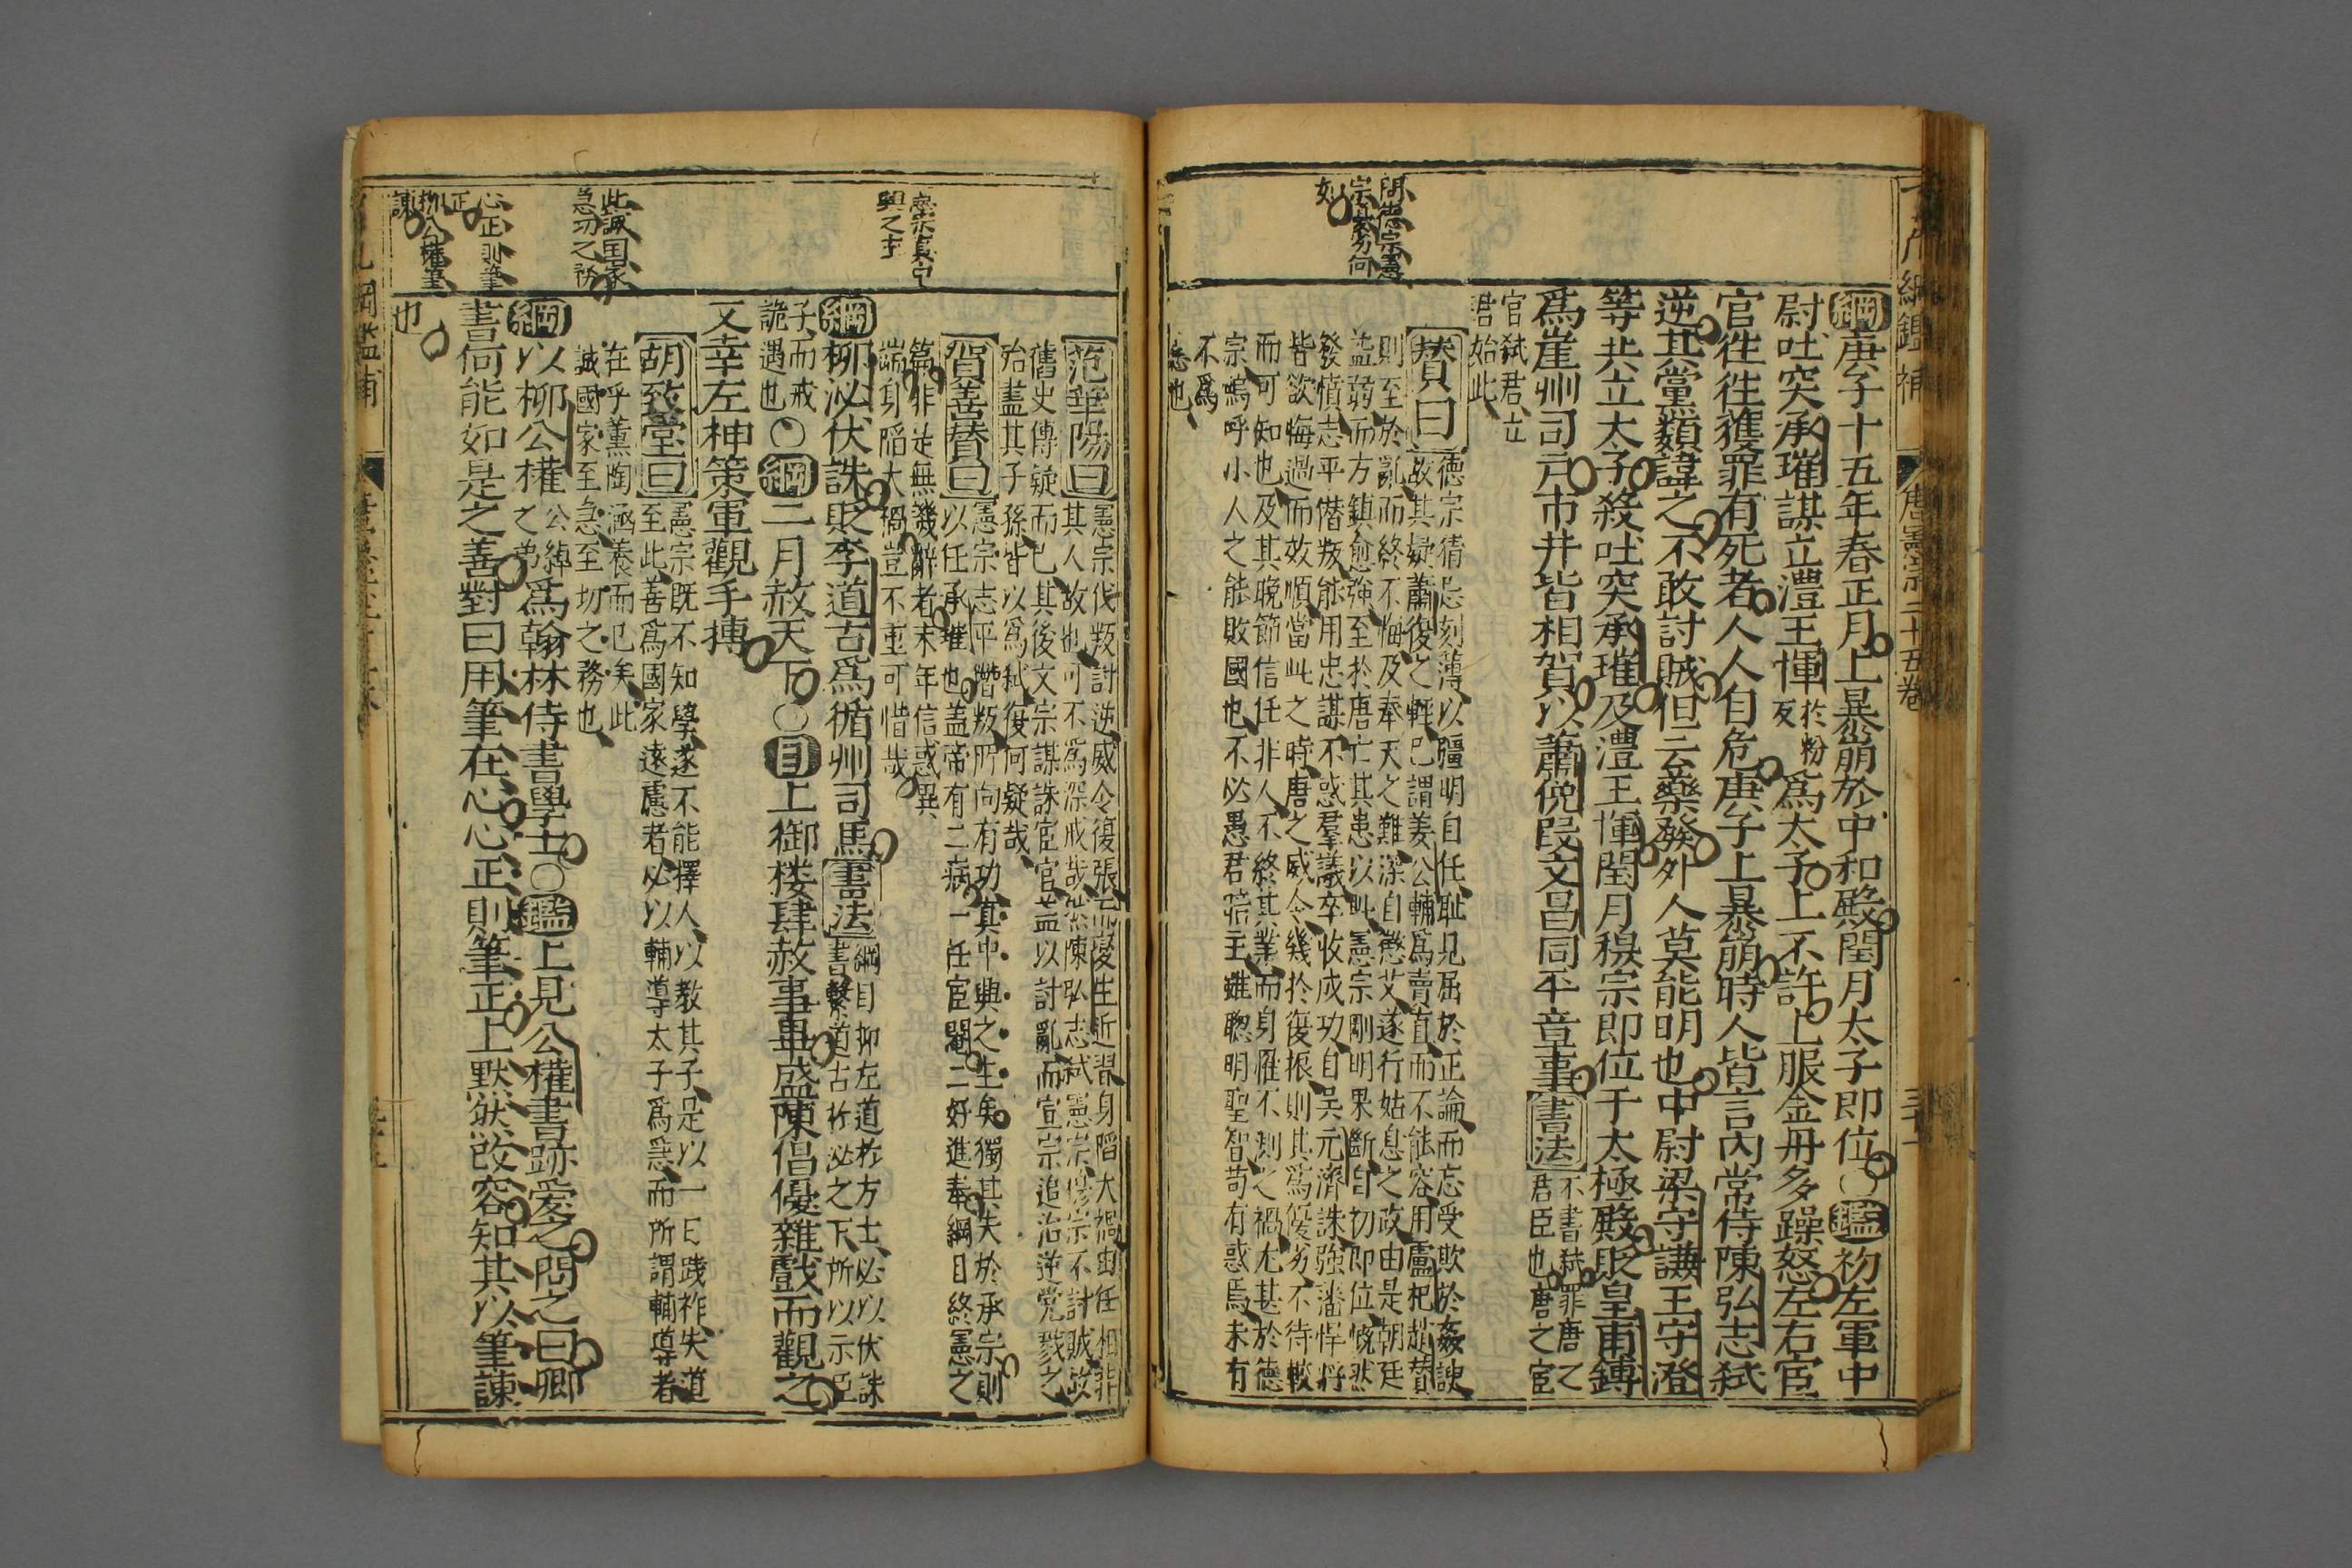 綱庚子十五年春正月上暴崩於中和殿閏月太子即位○鑑初左軍中
尉吐突承璀謀立澧王惲於粉反爲太子上不許上服金丹多躁怒左右宦
官往往獲罪有死者人人自危庚子上暴崩時人皆言內常侍陳弘志弑
逆其黨類諱之不敢討賊但云藥發外人莫能明也中尉梁守謙王守澄
等共立太子殺吐突承璀及澧王惲閏月穆宗即位于太極殿貶皇甫鎛
爲崖州司戶市井皆相賀以蕭俛段文昌同平章事書法不書弑罪唐之
君臣也唐之宦
官弑君立
君始此
贊曰德宗猜忌刻薄以彊明自任耻見屈於正論而忘受欺於姦諛
故其疑蕭復之輕已謂姜公輔爲賣直而不能容用盧杞趙贊
則至於亂而終不悔及奉天之難深自懲艾遂行姑息之政由是朝廷
益弱而方鎮愈強至於唐亡其患以此憲宗剛明果斷自初即位慨然
發憤志平僭叛能用忠謀不惑羣議卒收成功自吳元濟誅強藩悍將
皆欲悔過而效順當此之時唐之威令幾於復振則其爲優劣不待較
而可知也及其晚節信任非人不終其業而身罹不測之禍尤甚於德
宗嗚呼小人之能敗國也不必愚君暗主雖聰明聖智苟有惑焉未有
不爲
患也
問德宗憲
宗優劣何
如
范華陽曰憲宗伐叛討逆威令復張而變生近習身陷大禍由任相非
其人故也可不爲深戒哉然陳弘志弑憲宗穆宗不討賊故
舊史傳疑而已其後文宗謀誅宦官益以討亂而宣宗追治逆党戮之
殆盡其子孫皆以爲弑復何疑哉
賀善贊曰憲宗志平僭叛所向有功真中興之主矣獨其失於承宗則
以任承璀也盖帝有二病一任宦閹二好進奉綱目終憲之
篇非是無譏辭者末年信惑異
端身陷大禍豈不重可惜哉
憲宗真中
興之主
綱柳泌伏誅貶李道古爲循州司馬書法綱目抑左道於方士必以伏誅
書繫道古於泌之下所以示臣
子而戒
詭遇也○綱二月赦天下○目上御楼肆赦事畢盛陳倡優雜戲而觀之
又幸左神策軍觀手搏
胡致堂曰憲宗既不知學遂不能擇人以教其子是以一日踐祚失道
至此善爲國家遠慮者必以輔導太子爲急而所謂輔導者
在乎薰陶涵養而已矣此
誠國家至急至切之務也
此誠国家
急切之務
綱以柳公權公綽之弟爲翰林侍書學士○鑑上見公權書跡愛之問之曰卿
書何能如是之善對曰用筆在心心正則筆正上默然改容知其以筆諫
也
心正則筆
正
柳公權筆
諫
唐憲宗二十五卷